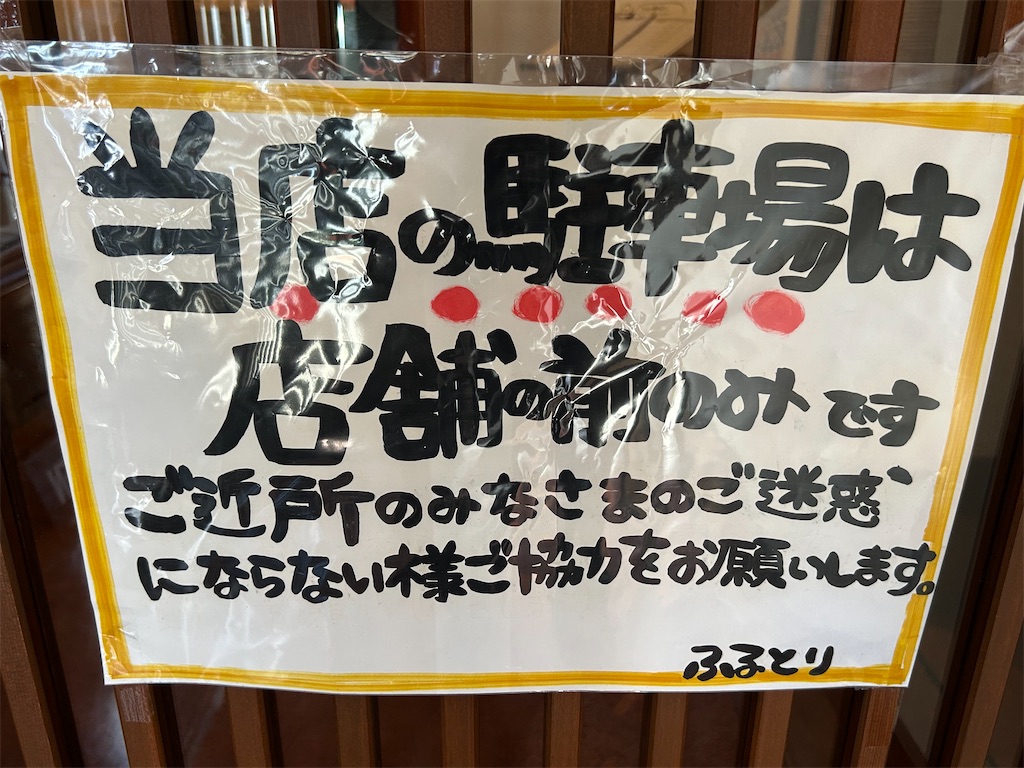 当店の駐車場は
店舗の前のみです
ご近所のみなさまのご迷惑
にならない様ご協力をお願いします。
ふふとり